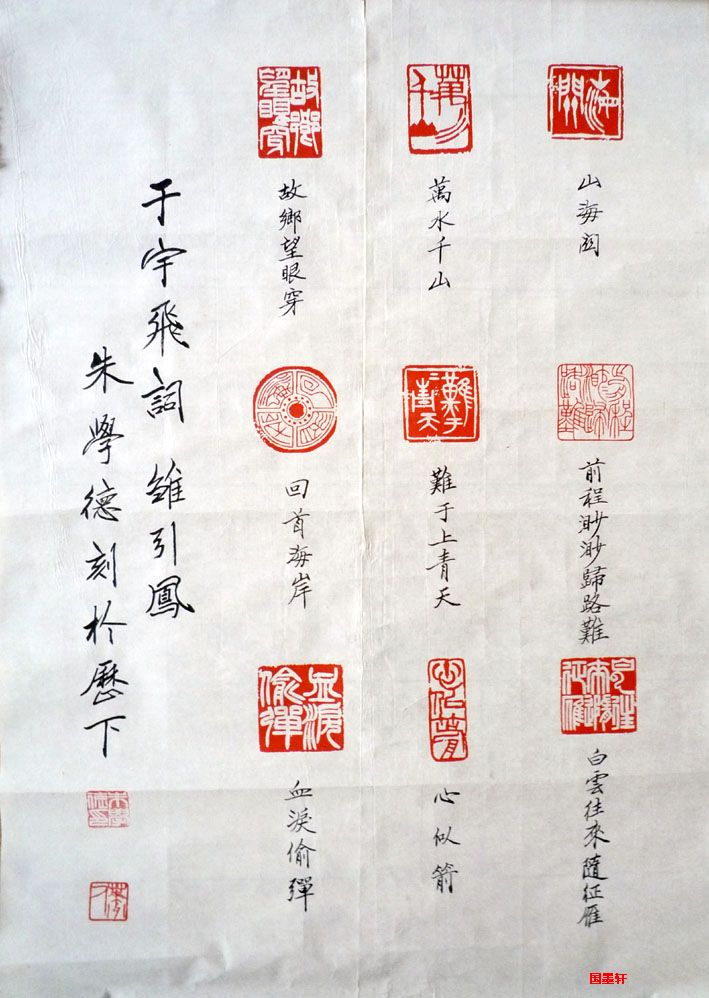 山海関
前程渺渺歸路難
白雲往來隨征雁
萬水千山
難于上青天
心似箭
故鄉望眼穿
回首海岸
血淚偷彈
于宇飛詞 雏引鳳
朱學德刻於歷下
国墨轩